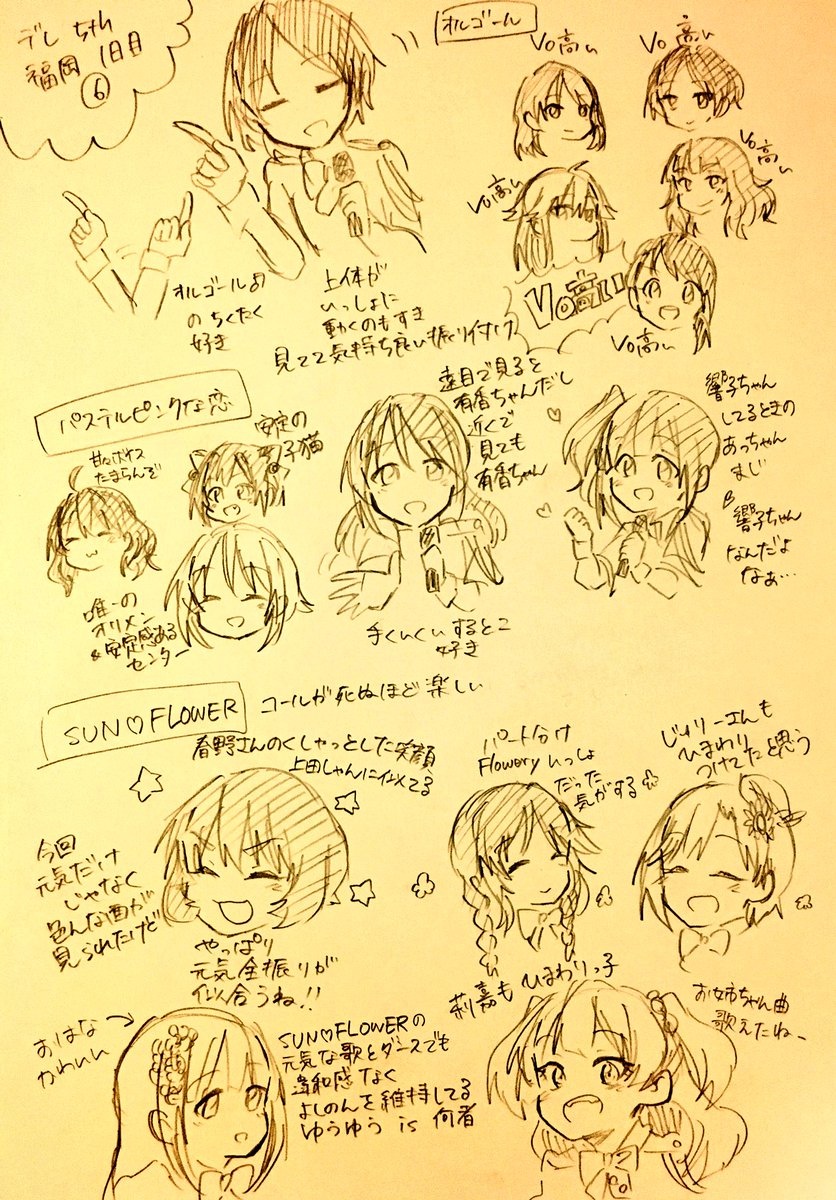 デレ ちゃん
福岡 1日目
⑥
オルゴール
Vo高い
Vo高い
Vo高い
Vo高い
Vo高い
Vo高い
オルゴール
の ちくたく
好き
上体が
いっしょに
動くのもすき
見てて気持ち良い振り付け
パステルピンクな恋
甘々ボイス
たまらんぞ
安定の
子猫
唯一の
オリメン
&安定感ある
センター
遠目で見ると
有香ちゃんだし
近くで
見ても
有香ちゃん
手くいくいするとこ
好き
響子ちゃん
してるときの
あっちゃん
まじ
響子ちゃん
なんだよ
なぁ…
SUN♡FLOWER
コールが死ぬほど楽しい
春野さんのくしゃっとした笑顔
上田しゃんに似てる
今回
元気だけ
じゃなく
色んな面が
見られたけど
やっぱり
元気全振りが
似合うね!!
パート分け
Floweryいっしょ
だった
気がする
じゅりーさんも
ひまわり
つけてたと思う
莉嘉も ひまわりっ子
お姉ちゃん曲
歌えたねー
おはな
かわいい
SUN♡FLOWERの
元気な歌とダンスでも
違和感なく
よしのんを維持してる
ゆうゆう is 何者